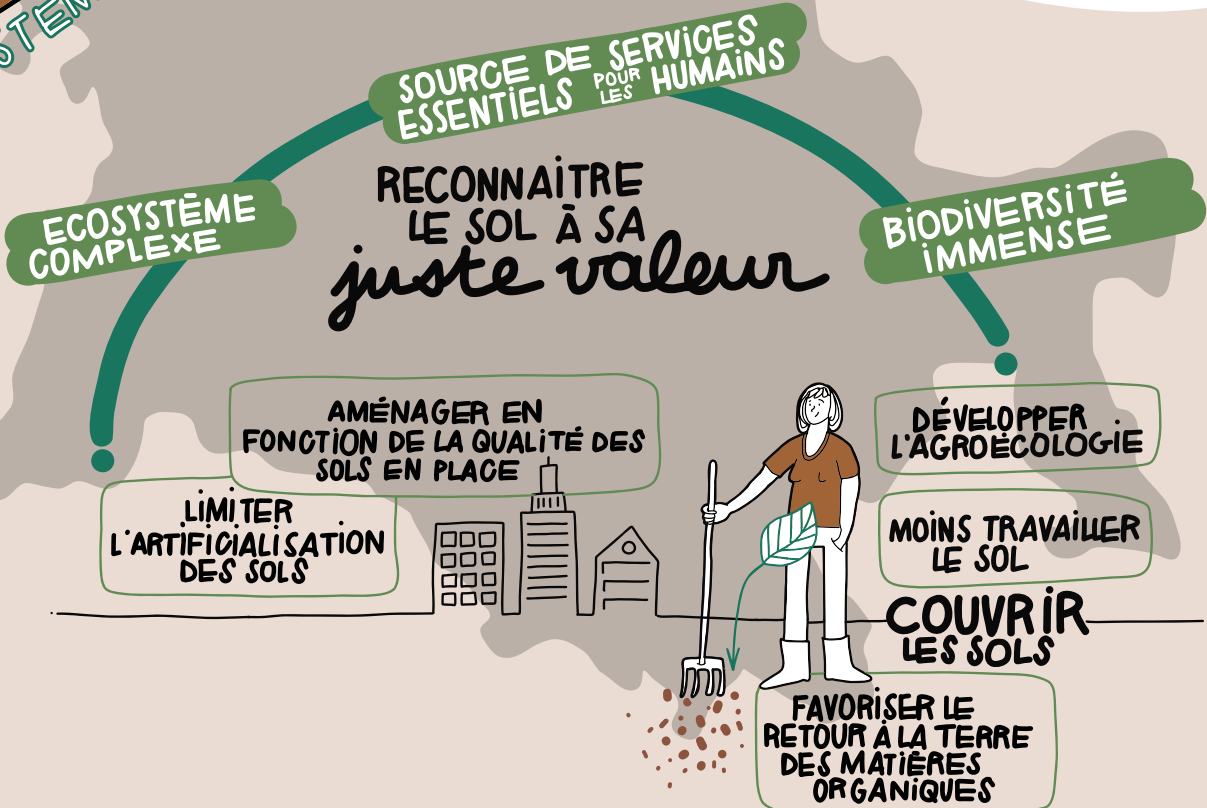 SOURCE DE SERVICES
ESSENTIELS POUR LES HUMAINS
ECOSYSTÈME
COMPLEXE
BIODIVERSITÉ
IMMENSE
RECONNAITRE
LE SOL À SA
juste valeur
AMÉNAGER EN
FONCTION DE LA QUALITÉ DES
SOLS EN PLACE
LIMITER
L'ARTIFICIALISATION
DES SOLS
DÉVELOPPER
L'AGROÉCOLOGIE
MOINS TRAVAILLER
LE SOL
COUVRIR
LES SOLS
FAVORISER LE
RETOUR À LA TERRE
DES MATIÈRES
ORGANIQUES